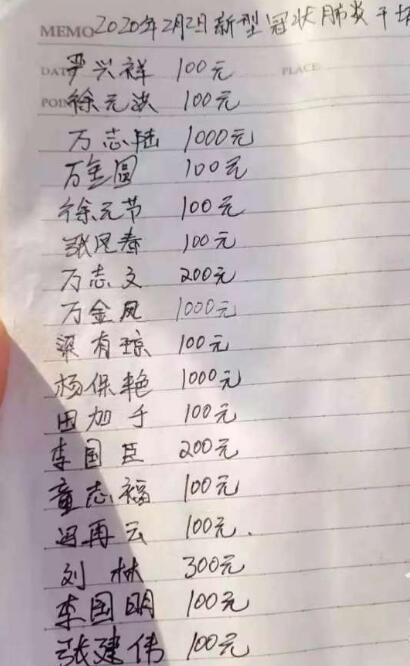 MEMO 2020年2月2日新型冠状肺炎
DATE PLACE
严兴祥 100元
POIN
徐元洪 100元
万志陆 1000元
万金圆 100元
徐元节 100元
张凤春 100元
万志文 200元
万金凤 1000元
梁有琼 100元
杨保艳 1000元
田加于 100元
李国臣 200元
童志福 100元
冯再云 100元.
刘林 300元
李国明 100元
张建伟 100元